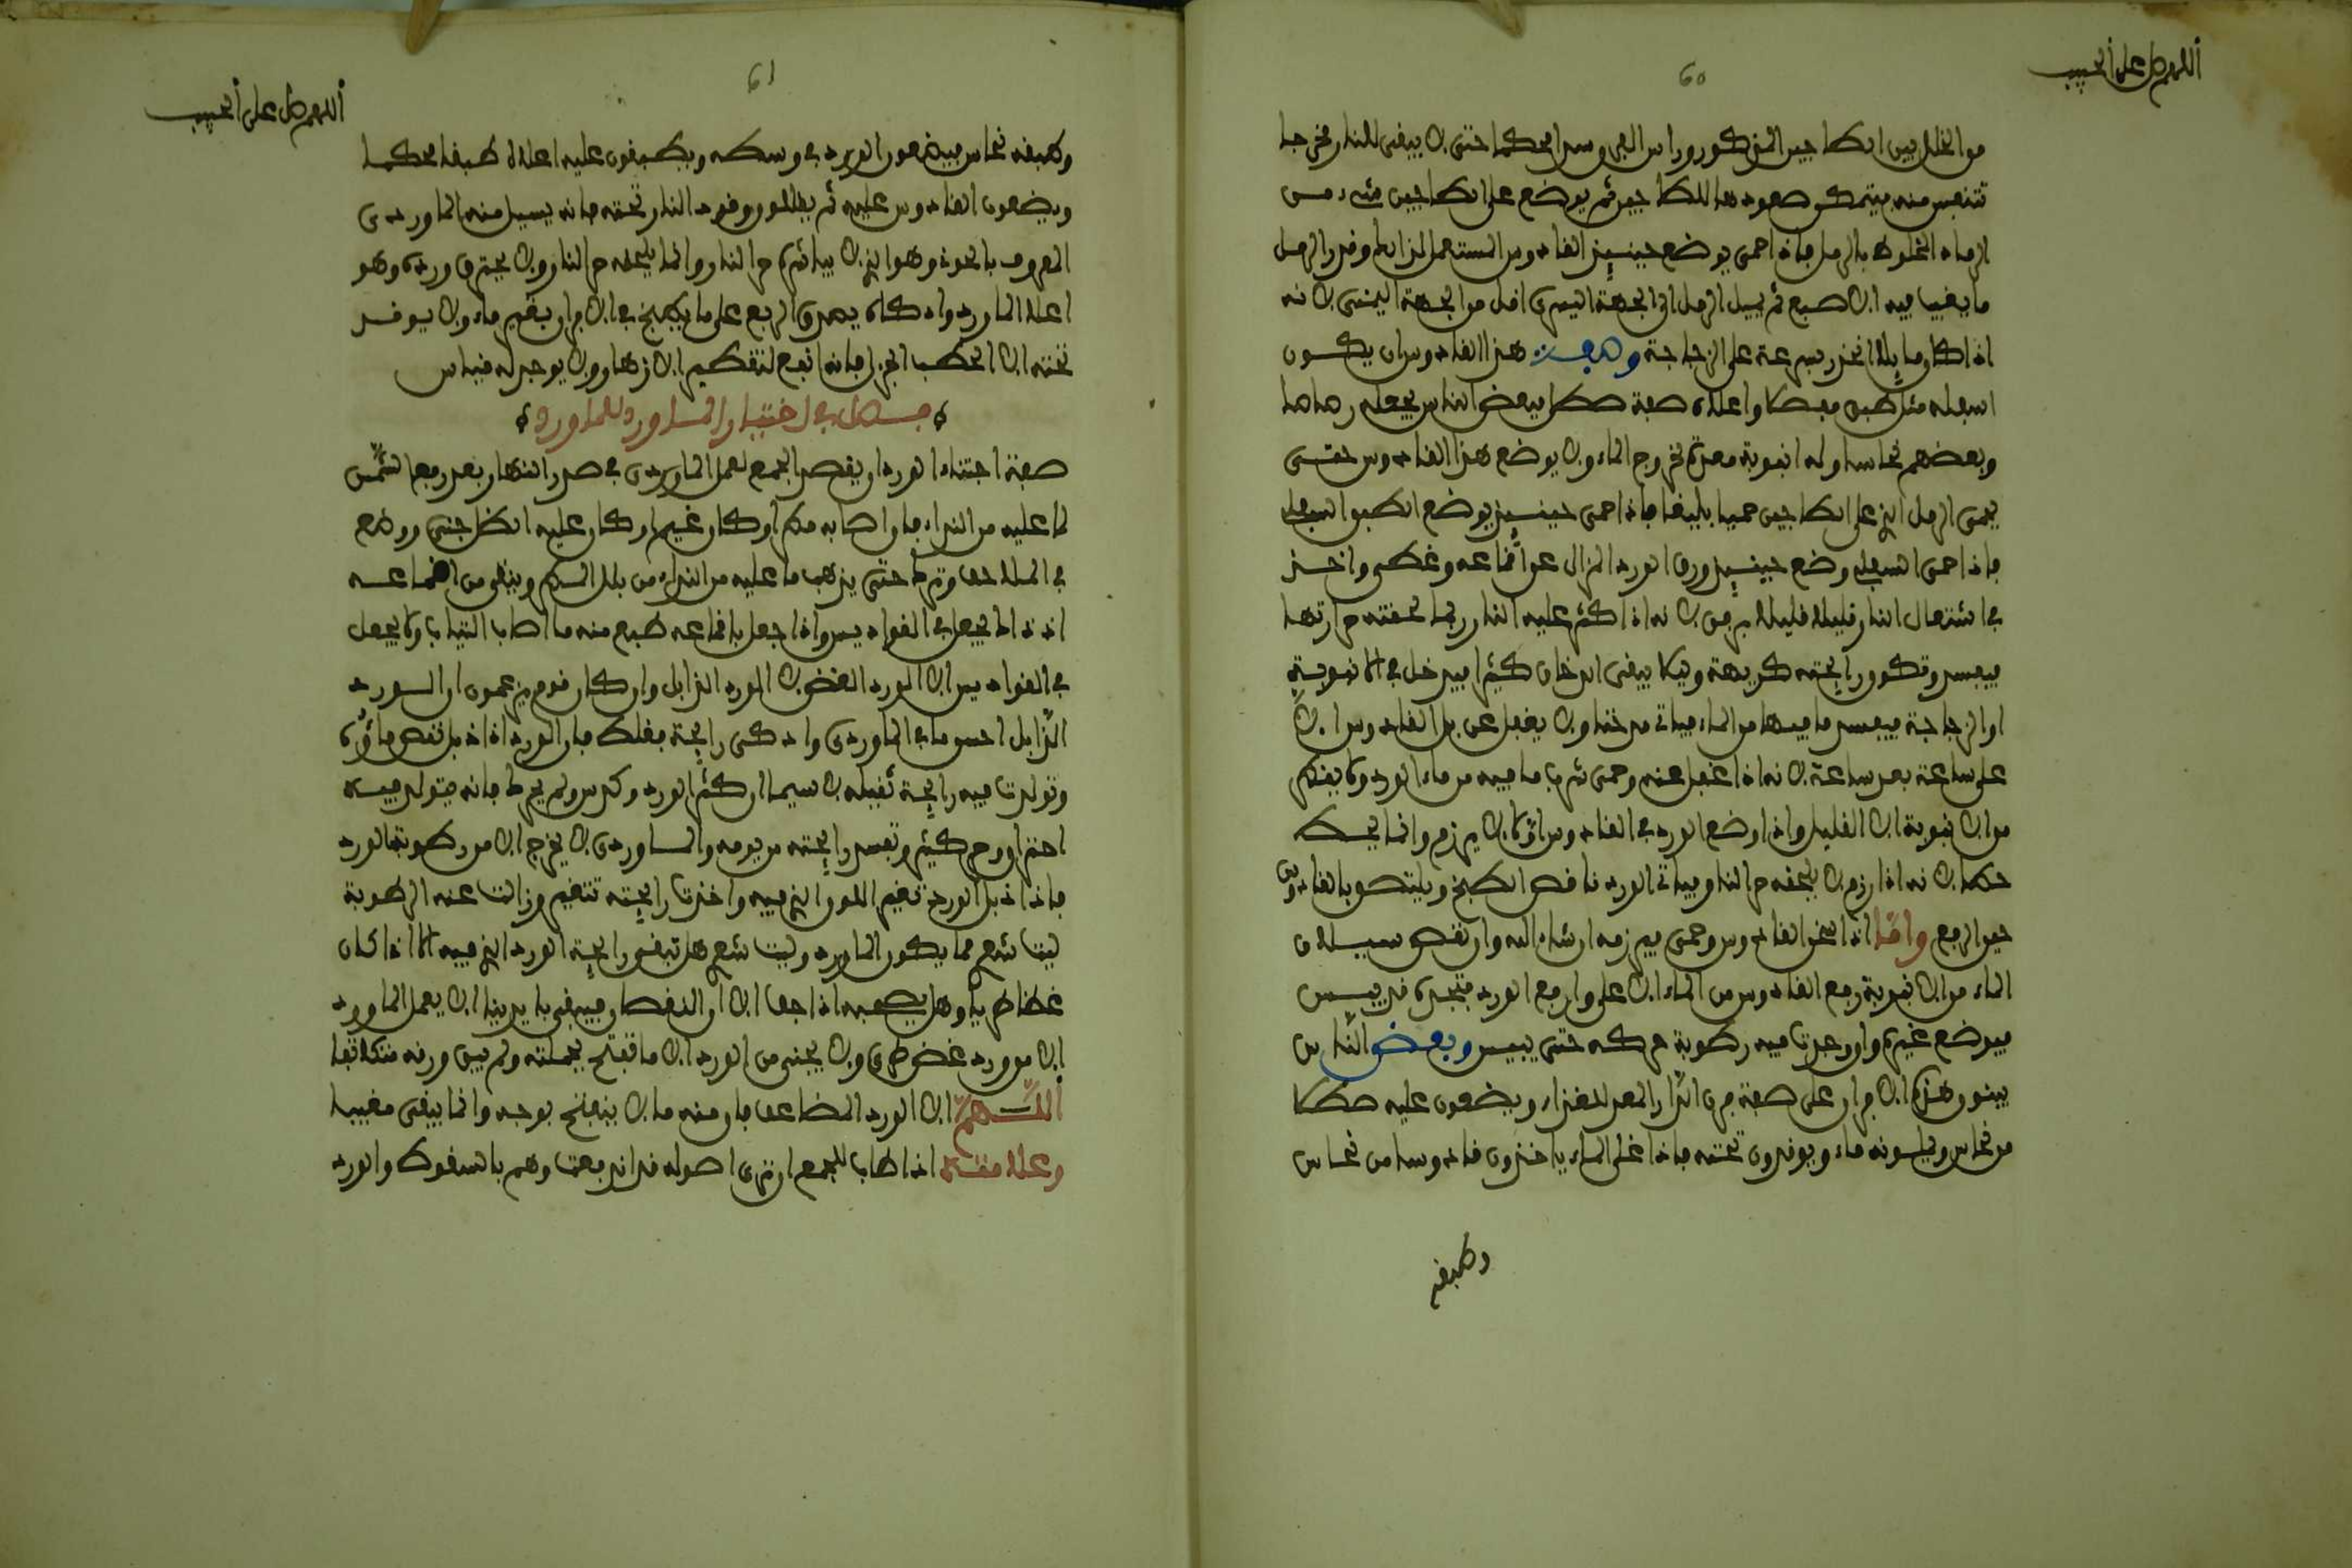 اللهم صل على الحبيب
60
من الخلل بين الطاجين المذكور وراس الفم وسدا محكما حتى لا يبقى للنار مخرجا
تتنفس منه فيتمكن صعودها للطاجين ثم يوضع على الطاجين شيء من
الرماد المخلوط بالرمل فاذا حمى يوضع حينيذ القادوس المستعمل لذالك وقدر الرمل
ما يغيب فيه الاصبع ثم يميل الرمل الى الجهة اليسرى اقل من الجهة اليمنى لانه
اذا كان مايلا انحدر بسرعة على الزجاجة وصفة هذا القادوس ان يكون
اسفله مثل طبق مبسط واعلاه صفة صطل فبعض الناس يجعله رصاصا
وبعضهم نحاسا وله انبوبة معدة لخروج الماء ولا يوضع هذا القادوس حتى
يحمى الرمل الذي على الطاجين حميا بليغا فاذا حمى حينيذ يوضع الطبق السفلي
فاذا حمى السفلي وضع حينيذ ورق الورد المزال عن اقماعه وغطى واخذ
في اشتعال النار قليلا قليلا برفق لانه اذا كثر عليه النار ربما لحقته حرارتها
فيفسد وتكون رايحته كريهة وليلا يبقى الدخان كثيرا فيدخل في الانبوبة
او الزجاجة فيفسد ما فيها من الماء فياتي مدخنا ولا يغفل عن بل القادوس الا
على ساعة بعد ساعة لانه اذا غفل عنه وحمى شرب ما فيه من ماء الورد ولا يقطر
من الانبوبة الا القليل واذا وضع الورد في القادوس اولا لا يرزم وانما يحط
حطا لانه اذا رزم لا يلحقه حر النار وياتي الورد ناقص الطبخ ويلتصق بالقادوس
حين الرفع واما اذا سخن القادوس وحمى فيرزمه ان شاء الله وان نقص سيلان
الماء من الانبوبة رفع القادوس من الماء الاعلى وان رفع الورد فتجده قد يبس
فيوضع غيره وان وجدت فيه رطوبة حركه حتى ييبس وبعض الناس
يبنون هذه الافران على صفة فرن الدار المعد للخبز ويضعون عليه صطلا
من نحاس ويملونه ماء ويوقدون تحته فاذا غلى الماء ياخذون قادوسا من نحاس
وطبقه
اللهم صل على الحبيب
61
وطبقه نحاس فيضعون الورد في وسطه ويطبقون عليه اعلاه طبقا محكما
ويضعون القادوس عليه ثم يطالون وقود النار تحته فانه يسيل منه الماوردي
المعروف بالحوت وهو الذي لا يباشره حر النار وانما يلحقه حر النار ولا يحترق ورده وهو
اعلا الماورد واذكاه يعدي الربع على ما يطبخ في الافران بغير ماء ولا يوقد
تحته الا الحطب الجزل فانه انفع لتقطير الازهار ولا يوجد له قياس
فصل في اختيار الماورد للماورد
صفة اجتناء الورد ان يقصد الجمع لعمل الماوردي في صدر النهار بعد رفع الشمس
لما عليه من النداء فان اصابه مطر او كان غيم او كان عليه الظل جنى ووضع
في الملاحف وترك حتى يذهب ما عليه من النداء من بلل المطر وينقى من اقماعه
اذ ذاك يجعل في القواديس واذا جعل باقماعه طبع منه ما اصاب الثياب ولا يجعل
في القواديس الا الورد الغض لا الورد الذابل وان كان قوم يزعمون ان الورد
الذابل احسن ما في الماوردي واذكى رايحة فغلط فان الورد اذا ذبل نقص ماؤه
وتولدت فيه رايحة ثقيلة لا سيما ان كثر الورد وكدس ولم يحرك فانه يتولد فيه
احتراق وحر كثير وتفسد رايحته من يومه والماوردي لا يخرج الا من رطوبة الورد
فاذا ذبل الورد تغير اللون الذي فيه واخذت رايحته تتغير وزالت عنه الرطوبة
ليت شعري مما يكون الماورد وليت شعري هل تبقى رايحة الورد الذي فيه الا اذا كان
غضا طريا وهل يصحبه اذا جف الا النقصان فينبغي بايدينا الا يعمل الماورد
الا من ورد غض طري ولا يجنى من الورد الا ما تفتح بجملته ولم يبق ورقه متكاثفا
اللهم الا الورد المضاعف فان منه ما لا ينفتح بوجه وانما يبقى مغيبا
وعلامته اذا طاب للجمع ان ترى اصوله قد اندفعت وهم بالسقوط والورد